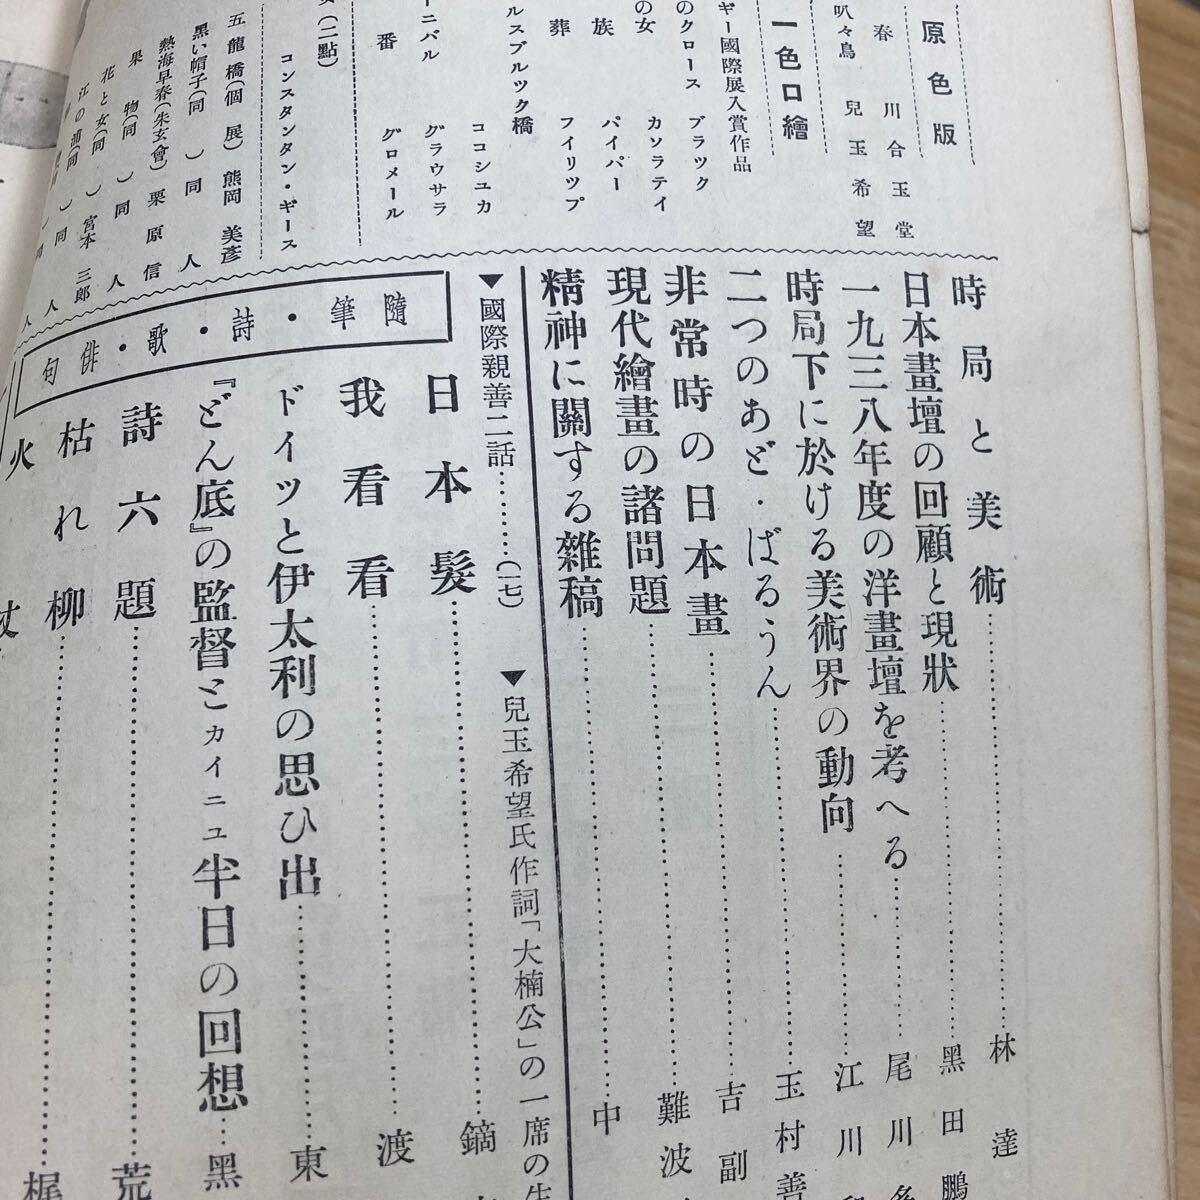 原色版
春 川合玉堂
叭々鳥 兒玉希望
一色口繪
ギー國際展入賞作品
のクロース ブラック
の女 カソラテイ
族 パイパー
葬 フイリツプ
ルスブルツク橋
ココシユカ
ーニバル グラウサラ
番 グロメール
(二點)
コンスタンタン・ギース
五龍橋(個展)熊岡美彥
黑い帽子(同)同人
熱海早春(朱玄會)栗原信
果物(同)同人
花と女(同)宮本三郎
江の浦(同)同人
時局と美術 林達
日本畫壇の回顧と現狀 黑田鵬
一九三八年度の洋畫壇を考へる 尾川多
時局下に於ける美術界の動向 江川和
二つのあど・ばるうん 玉村善
非常時の日本畫 吉副
現代繪畫の諸問題 難波
精神に關する雜稿 中
▼國際親善二話………(一七) ▼兒玉希望氏作詞「大楠公」の一席の生
隨筆・詩・歌・俳句
日本髮 鏑
我看看 渡
ドイツと伊太利の思ひ出 東
『どん底』の監督とカイニユ半日の回想 黑
詩六題 荒
枯れ柳 梶
火